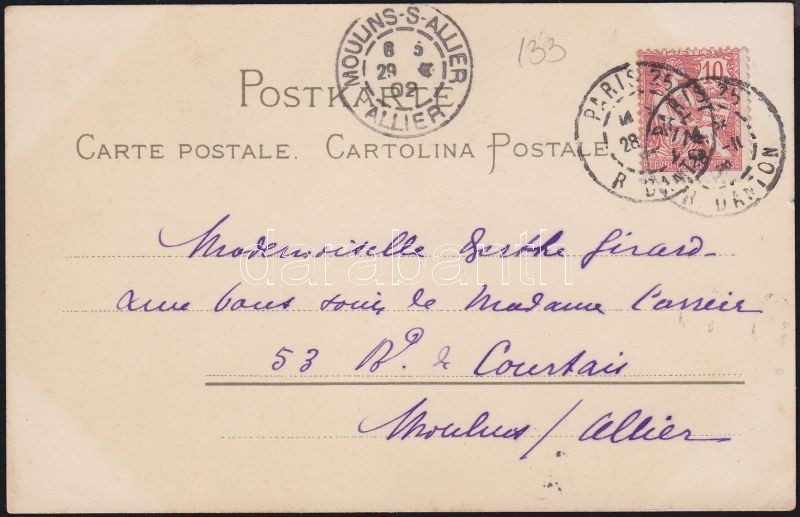 MOULINS-S-ALLIER
6 5
29
02
ALLIER
133
10
PARIS 25
28
R DANTON
PARIS 25
R DANTON
POSTKARTE
CARTE POSTALE. CARTOLINA POSTALE
Mademoiselle Berthe Girard
aux bons soins de Madame Carreir
53 Bd. de Courtais
Moulins / Allier
darabanth